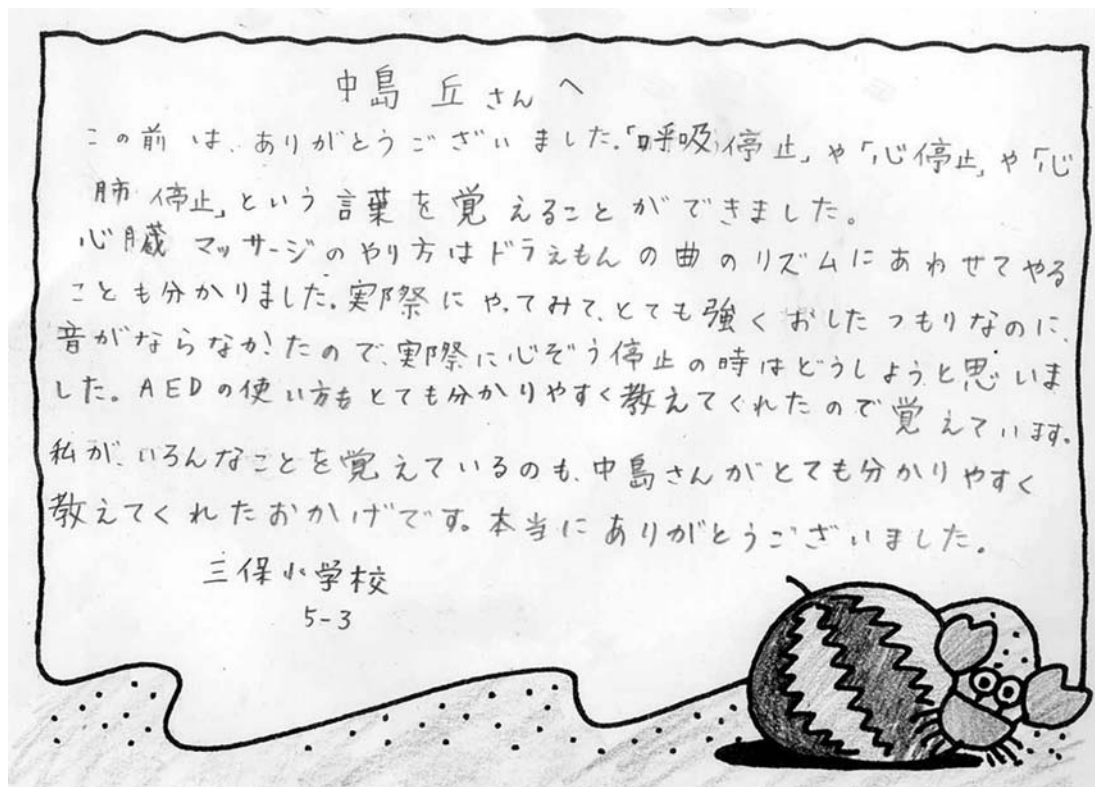 中島 丘 さん へ
この前は、ありがとうございました。「呼吸停止」や「心停止」や「心
肺停止」という言葉を覚えることができました。
心臓マッサージのやり方はドラえもんの曲のリズムにあわせてやる
ことも分かりました。実際にやってみて、とても強くおしたつもりなのに、
音がならなかったので、実際に心ぞう停止の時はどうしようと思いま
した。AEDの使い方もとても分かりやすく教えてくれたので覚えています。
私が、いろんなことを覚えているのも、中島さんがとても分かりやすく
教えてくれたおかげです。本当にありがとうございました。
三保小学校
5-3